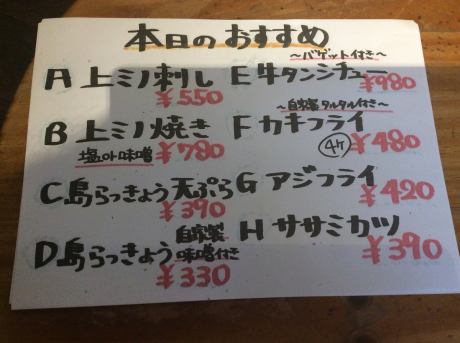 本日のおすすめ
A 上ミノ刺し
¥550
B 上ミノ焼き
塩or味噌 ¥780
C 島らっきょう天ぷら
¥390
D 島らっきょう 自家製味噌付き
¥330
〜バゲット付き〜
E 牛タンシチュー ¥980
〜自家製タルタル付き〜
F カキフライ
4ケ ¥480
G アジフライ
¥420
H ササミカツ
¥390